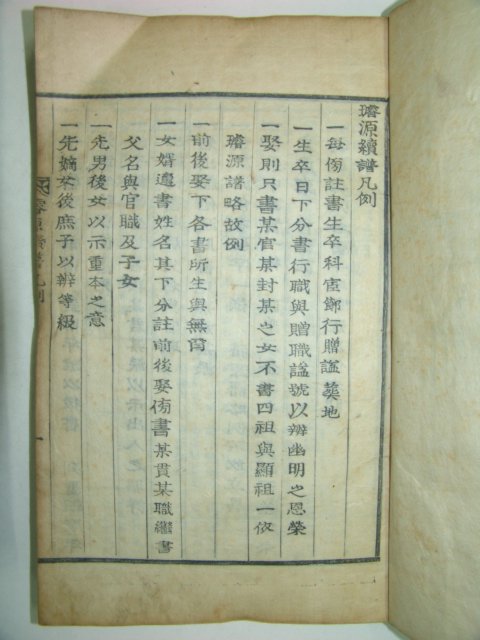 璿源續譜凡例
一每傍註書生卒科宦鄕行贈諡葬地
一生卒日下分書行職與贈職諡號以辨幽明之恩榮
一娶則只書某官某封某之女不書四祖與顯祖一依
璿源譜略故例
一前後娶下各書所生與無育
一女婿邊書姓名其下分註前後娶傍書某貫某職繼書
父名與官職及子女
一先男後女以示重本之意
一先嫡女後庶子以辨等級
璿源續譜凡例
一